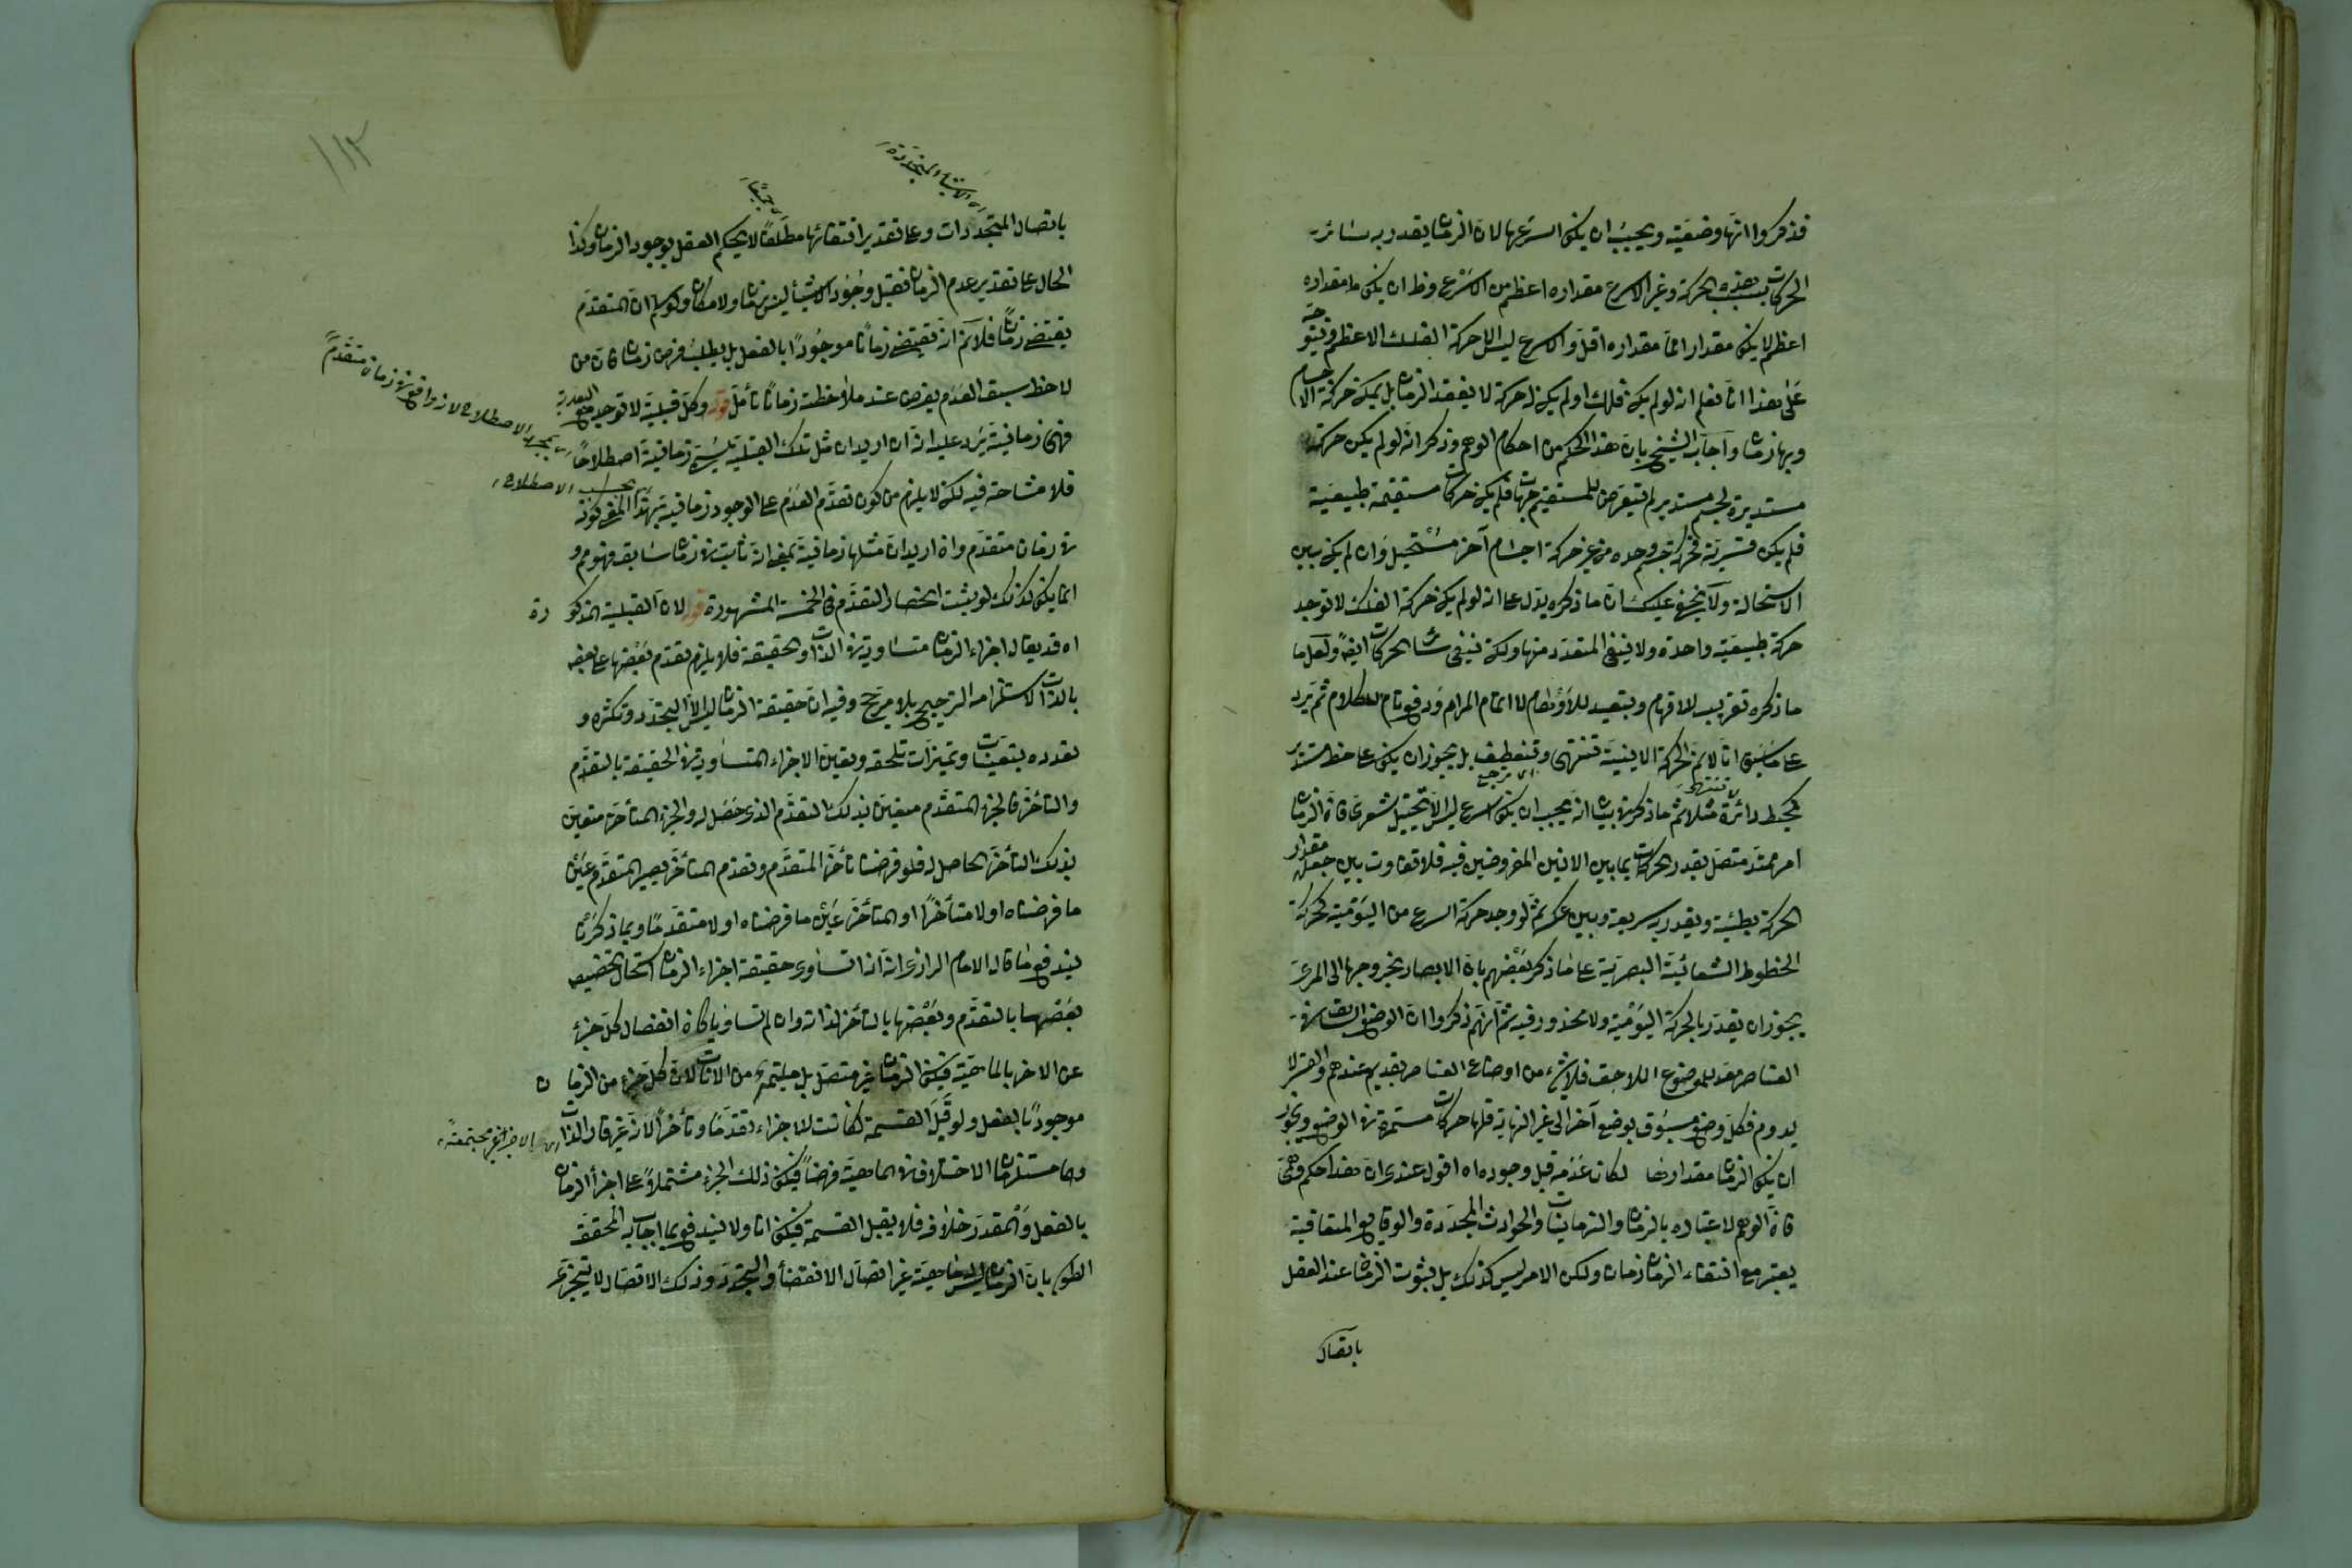 فذكروا انها وضعية ويجب ان يكون اسرعها لان الزمان يقدر به سائر
الحركات بسبب هذه الحركة وغير الاسرع مقداره اعظم من الاسرع وظ ان يكون ما مقداره
اعظم لا يكون مقدارا لما مقداره اقل والاسرع ليس الا حركة الفلك الاعظم
على هذا انا نعلم انه لو لم يكن فلك او لم يكن له حركة لا يفقد الزمان بل يمكن حركة الاجسام
وبها زمان واجاب الشيخ بان هذا الحكم من احكام الوهم وذكر انه لو لم يكن حركة
مستديرة لجسم مستدير لم تعرض للمستقيم جهات فلم يكن حركات مستقيمة طبيعية
فلم يكن قسرية فحركة جسم وحده من غير حركة اجسام آخر مستحيل وان لم يكن بين
الاستحالة ولا يخفى عليك ان ما ذكره يدل على انه لو لم يكن حركة الفلك لا توجد
حركة طبيعية واحدة ولا ينفى المتعدد منها ولكن ينفى سائر الحركات ايضا ولعل ما
ما ذكره تقريب للافهام وتبعيد للاوهام لا اتمام المرام ودفع تام للكلام ثم يرد
على ما سبق انا لانم ان الحركة الاينية تنتهى وتنعطف بل يجوز ان يكون على خط مستدير
كمحيط دائرة مثلا ثم ما ذكره في بيان انه يجب ان يكون اسرع ليس الا تخييل شعرى فان الزمان
امر ممتد متصل يقدر الحركات بما بين الانين المفروضين فيه فلا تفاوت بين جعل مقدار
الحركة بطيئة ويقدر به سريعة وبين عكسه ثم لو وجد حركة اسرع من اليومية كحركة
الخطوط الشعاعية البصرية على ما ذكر بعضهم بان الابصار بخروجها الى المرئ
يجوز ان يقدر بالحركة اليومية ولا محذور فيه ثم انهم ذكروا ان الوضع السابق في
العناصر معد للموضوع اللاحق فلا شئ من اوضاع العناصر بقديم عندهم والقسر لا
يدوم فكل وضع مسبوق بوضع آخر الى غير النهاية فلها حركات مستمرة في الوضع ويجوز
ان يكون الزمان مقدارها لكان عدمه قبل وجوده اه اقول عندى ان هذا حكم وهمى
فان الوهم لاعتياده بالزمان والزمانيات والحوادث المجددة والوقايع المتعاقبة
يعتبر مع انتفاء الزمان زمان ولكن الامر ليس كذلك بل ثبوت الزمان عند العقل
باتصال
١١٢
اى الاشياء المتجددة
جميعا
باتصال المتجددات وعلى تقدير انتفائها مطلقا لا يحكم العقل بوجود الزمان وكذا
الحال على تقدير عدم الزمان فقبل وجود الاشياء ليس زمان ولا مكان ولو سلم ان المتقدم
يقتضى زمانا فلا نم انه يقتضى زمانا موجودا بالفعل بل يطلب فرض زمان فان من
لاحظ سبق العدم يفرض عند ملاحظته زمانا تأمل قوله وكل قبلية لا توجد مع البعدية
فهى زمانية يرد عليه انه ان اريد ان مثل تلك القبلية يسمى زمانية اصطلاحا
بمجرد الاصطلاح لانه واقع في زمان متقدم
فلا مشاحة فيه لكن لا يلزم من كون تقدم العدم على الوجود زمانية بهذا المعنى كونه
بحسب الاصطلاح
في زمان متقدم وان اريد ان مثلها زمانية بمعنى انه ثابت في زمان سابق فهو مم و
انما يكون كذلك لو يثبت انحصار التقدم في الخمسة المشهورة قوله لان القبلية المذكورة
اه قد يقال اجزاء الزمان متساوية في الذات والحقيقة فلا يلزم تقدم بعضها على بعض
بالذات لاستلزامه الترجيح بلا مرجح وفيه ان حقيقة الزمان ليس الا التجدد وتكثره و
تعدده بتعينات وتميزات تلحقه وتعين الاجزاء المتساوية في الحقيقة بالتقدم
والتأخر فالجزء المتقدم متعين بذلك التقدم الذى حصل له والجزء المتأخر متعين
بذلك التأخر الحاصل له فلو فرضنا تأخر المتقدم وتقدم المتأخر يصير المتقدم عين
ما فرضناه اولا متأخرا او المتأخر عين ما فرضناه اولا متقدما وبما ذكرنا
يندفع ما قال الامام الرازى انه ان تساوى حقيقة اجزاء الزمان استحال تخصيص
بعضها بالتقدم وبعضها بالتأخر لذاته وان لم تساويا كان انفصال كل جزء
عن الاخر بالماهية فيكون الزمان غير متصل بل ملتئم من الانات لان كل جزء من الزمان
موجودا بالفعل ولو قبل القسمة لكانت للاجزاء تقدما وتأخرا لانه غير قار الذات
اى الاجزاء غير مجتمعة
وهما مستلزمان الاختلاف في الماهية فرضا فيكون ذلك الجزء مشتملا على اجزاء الزمان
بالفعل والمقدر خلافه فلا يقبل القسمة فيكون انا ولا يندفع بما اجاب به المحقق
الطوسى بان الزمان ليس له ماهية غير اتصال الانقضاء والتجدد وذلك الاتصال لا يتجزى